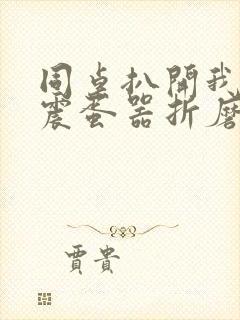 同桌扒開我
震蛋器折磨
賈貴